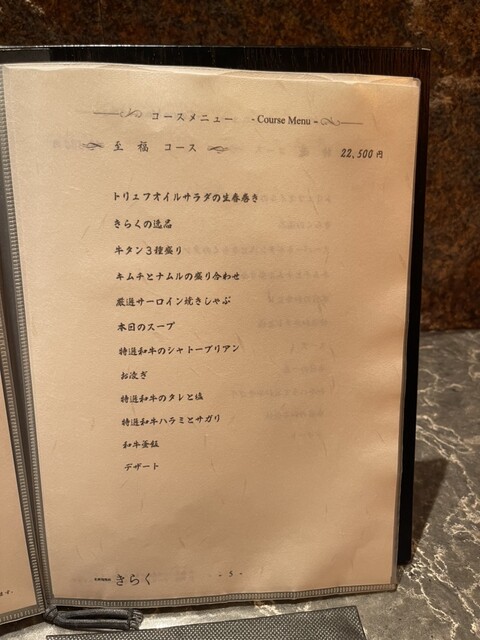 コースメニュー - Course Menu -
至 福 コース 22,500 円
トリュフオイルサラダの生春巻き
きらくの逸品
牛タン3種盛り
キムチとナムルの盛り合わせ
厳選サーロイン焼きしゃぶ
本日のスープ
特選和牛のシャトーブリアン
お凌ぎ
特選和牛のタレと塩
特選和牛ハラミとサガリ
和牛釜飯
デザート
きらく
- 5 -